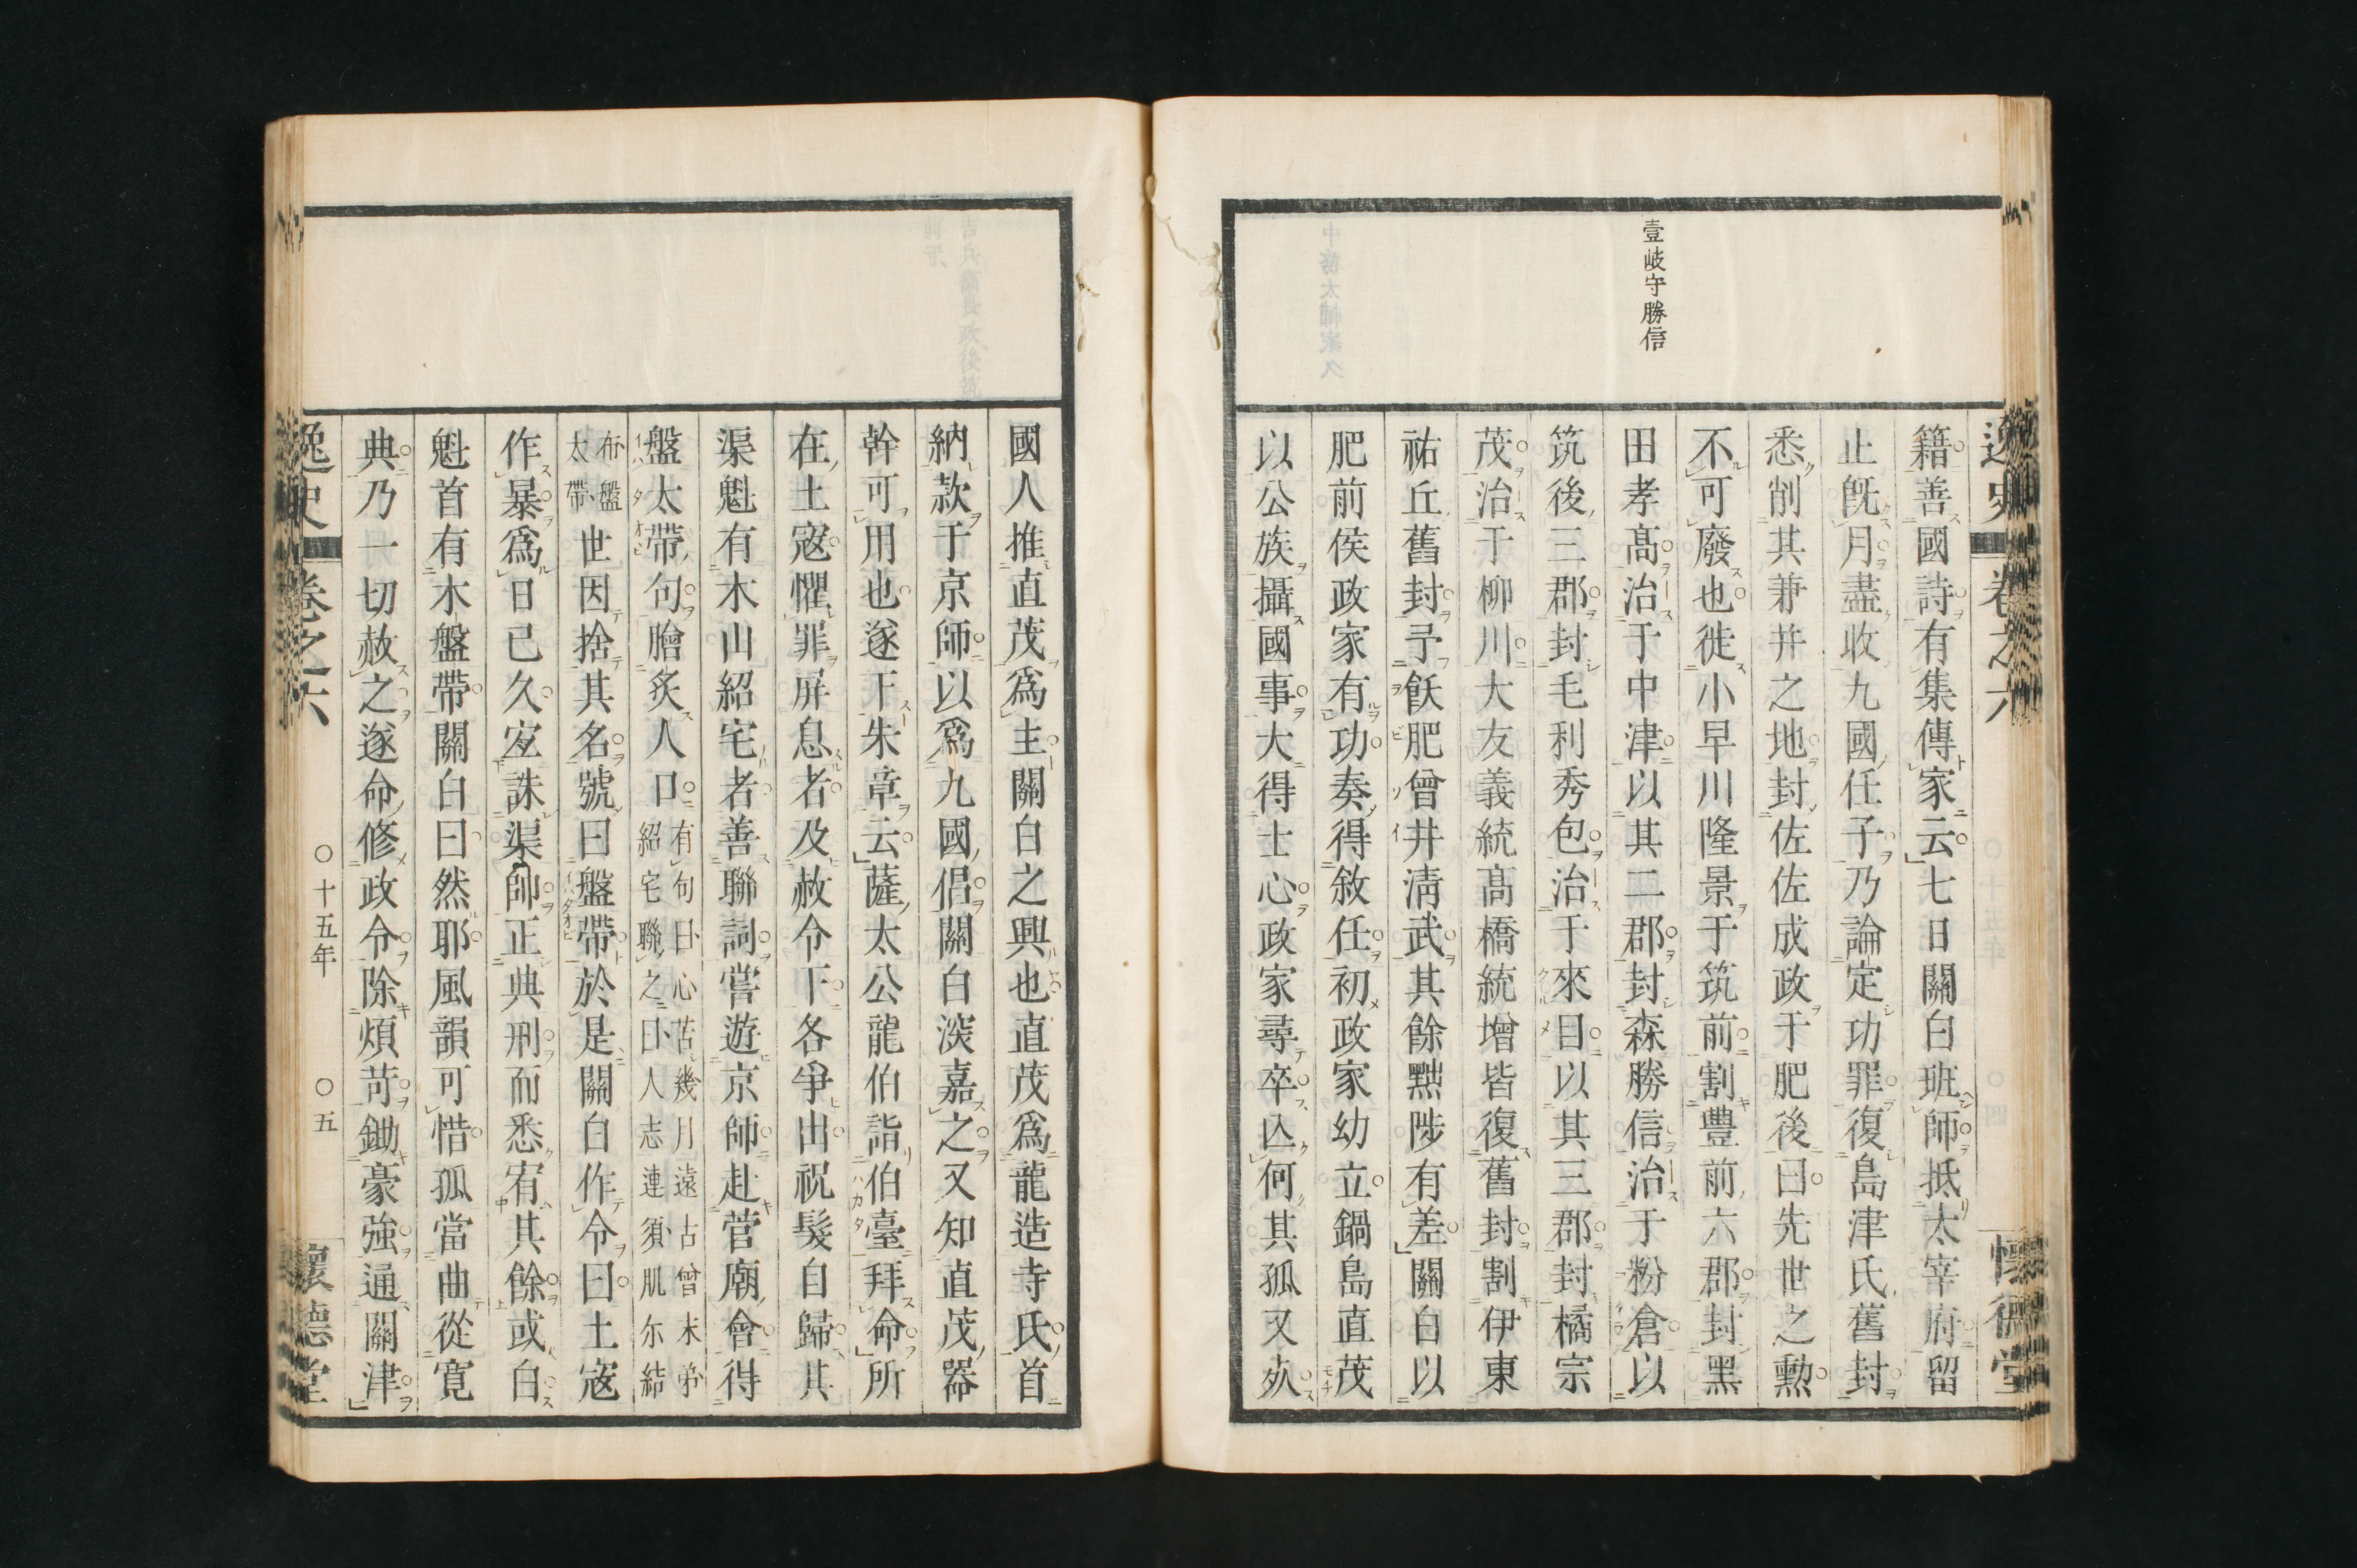 壹岐守勝信
籍善國詩有集傳家云七日關白班師抵太宰府留
止旣月盡收九國任子乃論定功罪復島津氏舊封
悉削其兼幷之地封佐佐成政于肥後曰先世之勲
不可廢也徙小早川隆景于筑前割豊前六郡封黑
田孝高治于中津以其二郡封森勝信治于粉倉以
筑後三郡封毛利秀包治于來目以其三郡封橘宗
茂治于柳川大友義統髙橋統增皆復舊封割伊東
祐丘舊封予飫肥曾井淸武其餘黜陟有差關白以
肥前侯政家有功奏得敘任初政家幼立鍋島直茂
以公族攝國事大得士心政家尋卒亾何其孤又殀
國人推直茂爲主關白之興也直茂爲龍造寺氏首
納款于京師以爲九國倡關白深嘉之又知直茂器
幹可用也遂下朱章云薩太公龍伯詣伯臺拜命所
在土寇懼罪屏息者及赦令下各爭出祝髮自歸其
渠魁有木山紹宅者善聯詞嘗遊京師赴菅廟會得
盤太帶句膾炙人口有句曰心苦幾月遠古曾末弟
紹宅聯之曰人志連須肌尓結
布盤
太帶世因捨其名號曰盤帶於是關白作令曰土寇
作暴爲日已久宜誅渠帥正典刑而悉宥其餘或白
魁首有木盤帶關白曰然耶風韻可惜孤當曲從寬
典乃一切赦之遂命修政令除煩苛鋤豪強通關津
逸史 卷之六 〇十五年 〇五 懷德堂